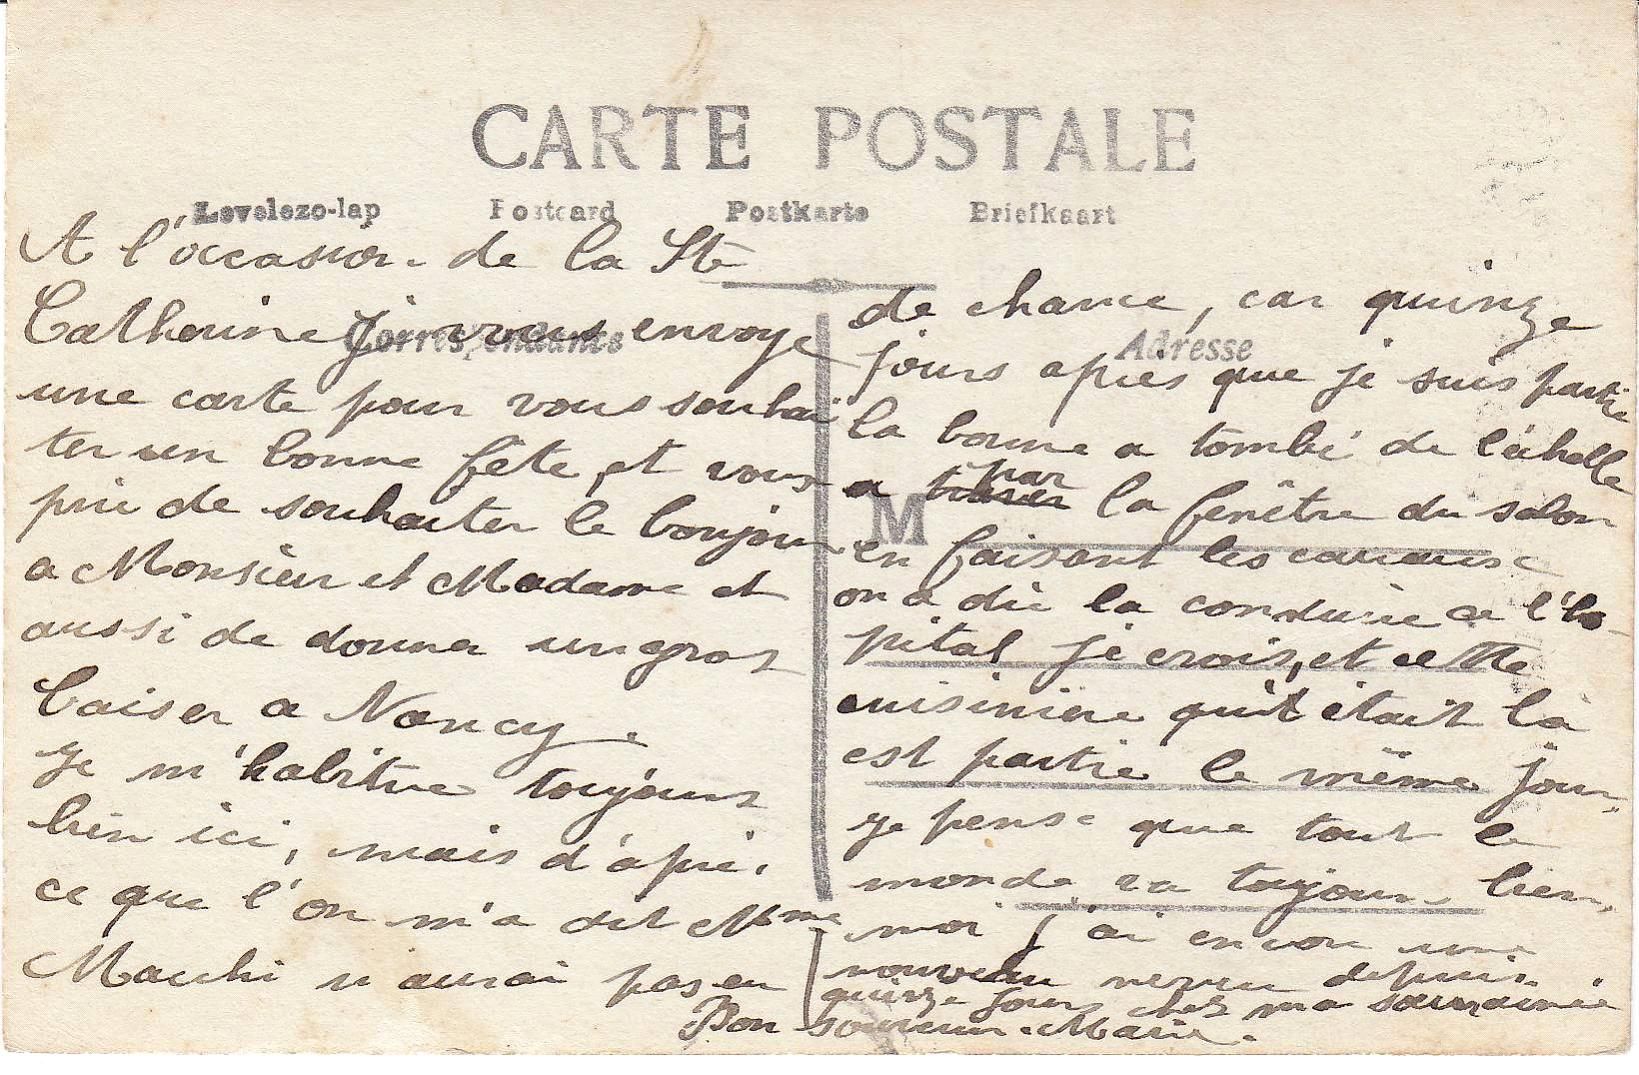 CARTE POSTALE
Levelezo-lap Postcard Postkarte Briefkaart
Correspondante
Adresse
M
A l'occasion de la Ste
Catherine je vous envoye
une carte pour vous souhai
ter un bonne fête, et vous
prie de souhaiter le bonjour
a Monsieur et Madame et
aussi de donner un gros
baiser a Nancy.
Je m'habitue toujours
bien ici, mais d'après
ce que l'on m'a dit Mme
Macchi n'aurai pas eu
de chance, car quinze
jours après que je suis partie
la bonne a tombé de l'échelle
a par la fenêtre du salon
en faisant les carreause
on a dû la conduire a l'hô-
pital je crois, et cette
cuisinière qui était là
est partie le même jour,
je pense que tout le
monde va toujours bien,
moi j'ai encore une
nouveau neveu depuis
quinze jours chez ma sœur ainée
Bon souvenir. Marie.